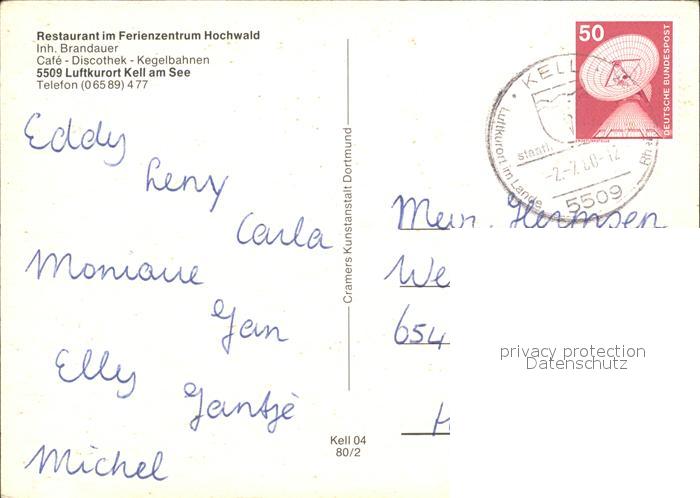 Restaurant im Ferienzentrum Hochwald
Inh. Brandauer
Café - Discothek - Kegelbahnen
5509 Luftkurort Kell am See
Telefon (0 65 89) 4 77
Eddy
Leny
Carla
Monique
Jan
Elly
Jantje
Michel
Cramers Kunstanstalt Dortmund
Kell 04
80/2
50
DEUTSCHE BUNDESPOST
KELL
Luftkurort im Lande
staatl.
-2.-7.80-12
5509
Hermsen
We
654
privacy protection
Datenschutz